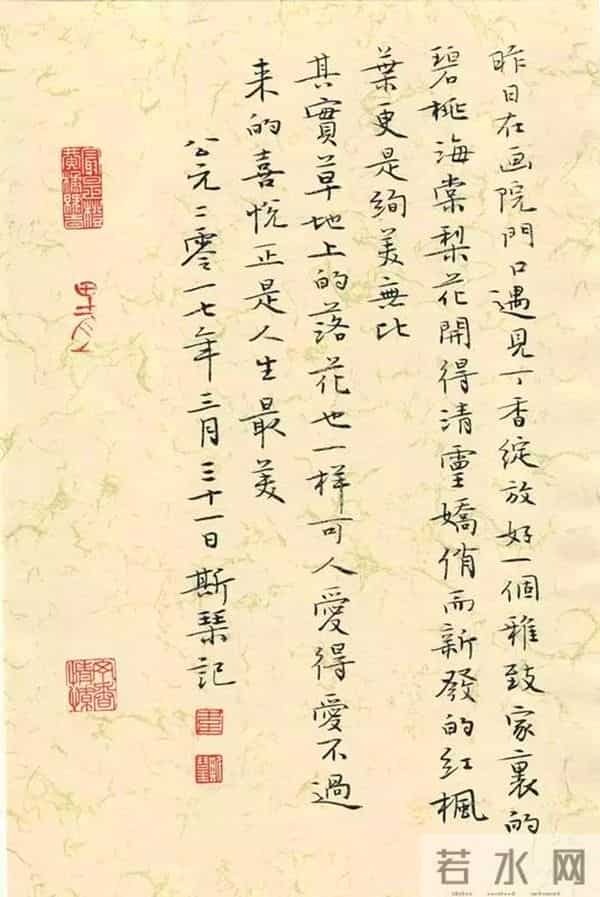 昨日在画院門口遇見丁香綻放好一個雅致家裏的
碧桃海棠梨花開得清靈嬌俏而新發的紅楓
葉更是絢美無比
其實草地上的落花也一樣可人愛得愛不過
来的喜悅正是人生最美
公元二零一七年三月三十一日斯琹記
若水网